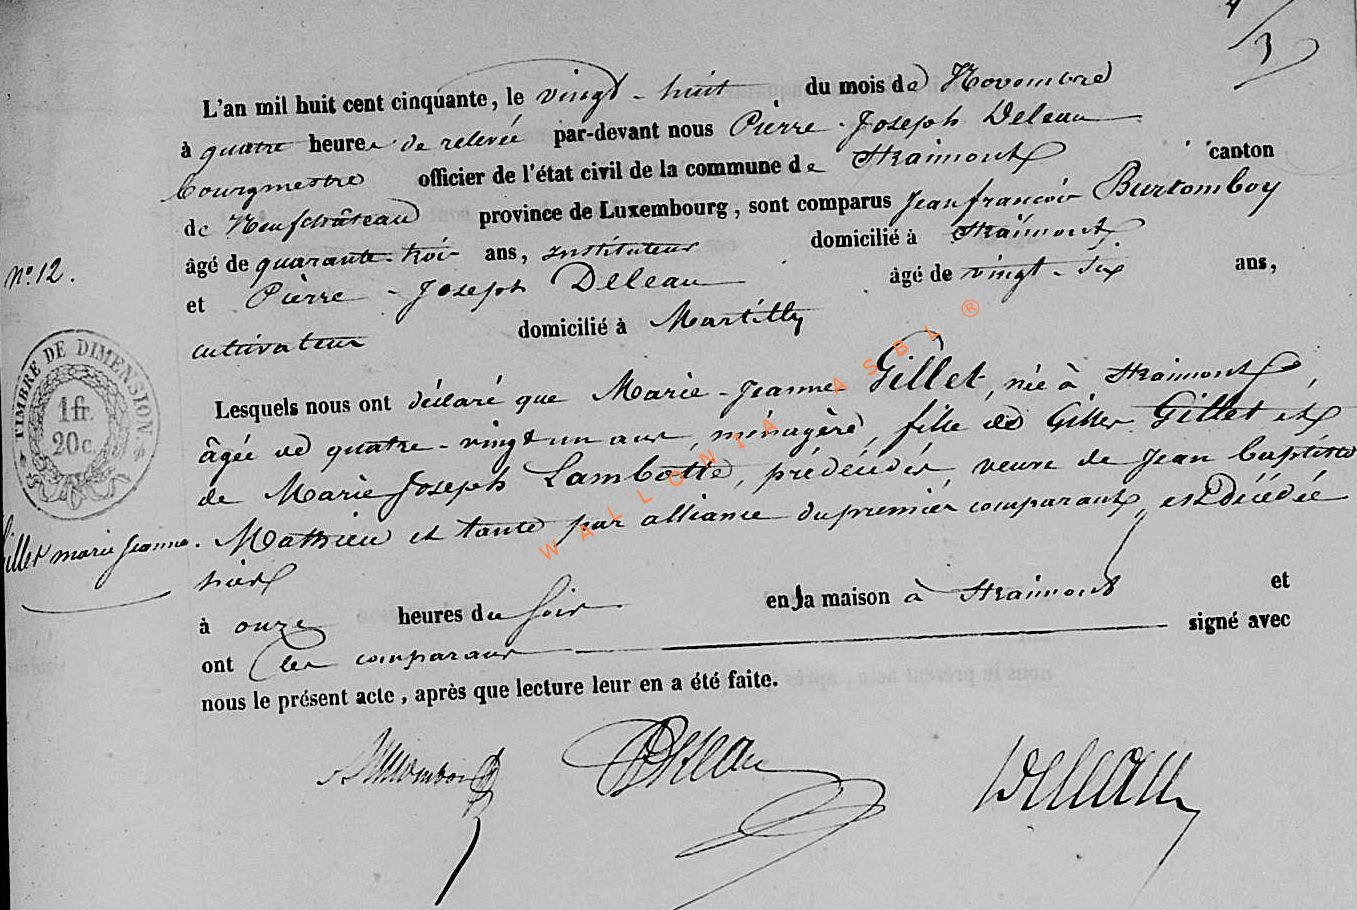 4/3
L'an mil huit cent cinquante, le vingt-huit du mois de Novembre
à quatre heures de relevée par-devant nous Pierre-Joseph Deleau
bourgmestre officier de l'état civil de la commune de Straimont canton
de Neufchâteau province de Luxembourg, sont comparus Jean françois Burtomboy
âgé de quarante-trois ans, instituteur domicilié à Straimont
et Pierre-Joseph Deleau âgé de vingt-six ans,
cultivateur domicilié à Martilly
Lesquels nous ont déclaré que Marie-Jeanne Gillet, née à Straimont,
âgée de quatre-vingt un ans, ménagère, fille de Gilles Gillet et
de Marie Joseph Lambotte, prédécédés veuve de Jean baptiste
Mathieu et tante par alliance du premier comparant, est Décédée
hier
à onze heures du soir en sa maison à Straimont et
ont les comparans signé avec
nous le présent acte, après que lecture leur en a été faite.
N° 12.
TIMBRE DE DIMENSION.
1 fr.
20 c.
Gillet marie jeanne.
Burtomboy
PJ Deleau
Deleau
WALLONIA ASBL ®